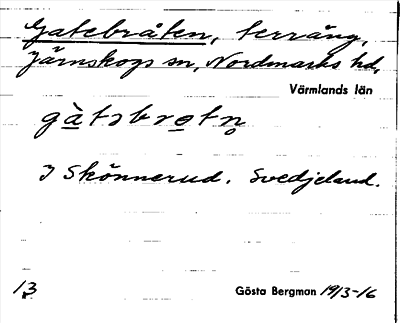 Gatebråten, terräng,
Järnskogs sn, Nordmarks hd,
Värmlands län
gàtsbretn̥
I Skönnerud. Svedjeland.
13
Gösta Bergman 19/3-16